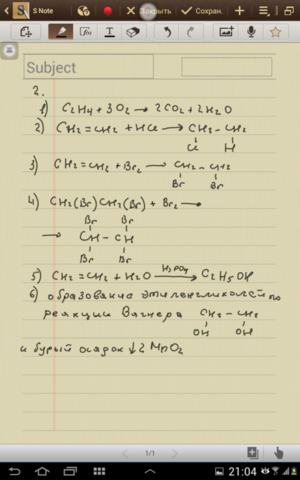 S Note
Закрыть
Сохран.
Subject
2.
1) C2H4 + 3O2 → 2CO2 + 2H2O
2) CH2 = CH2 + HCl → CH2 – CH2
Cl H
3) CH2 = CH2 + Br2 → CH2 – CH2
Br Br
4) CH2(Br)CH2(Br) + Br2 →
Br Br
→ CH – CH
Br Br
5) CH2 = CH2 + H2O H3PO4→ C2H5OH
6) образование этиленгликолей по
реакции Вагнера CH2 – CH2
OH OH
и бурый осадок ↓2 MnO2
1/1
21:04